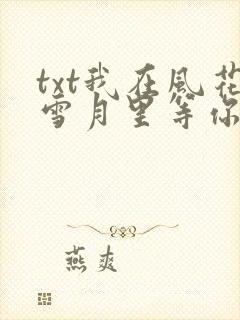 txt我在风花
雪月里等你
燕爽